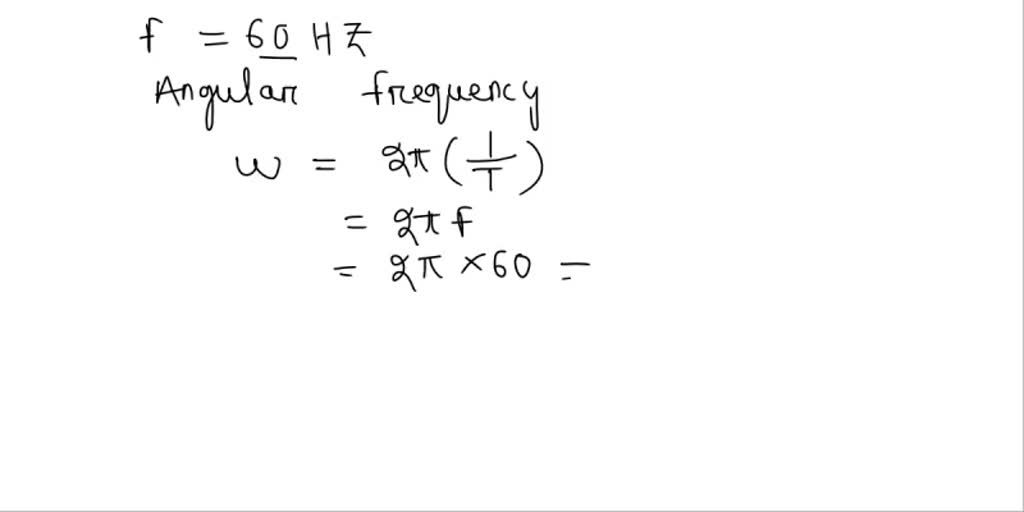 f = 60 HZ
Angular frequency
w = 2π(1/T)
= 2πf
= 2π × 60 =